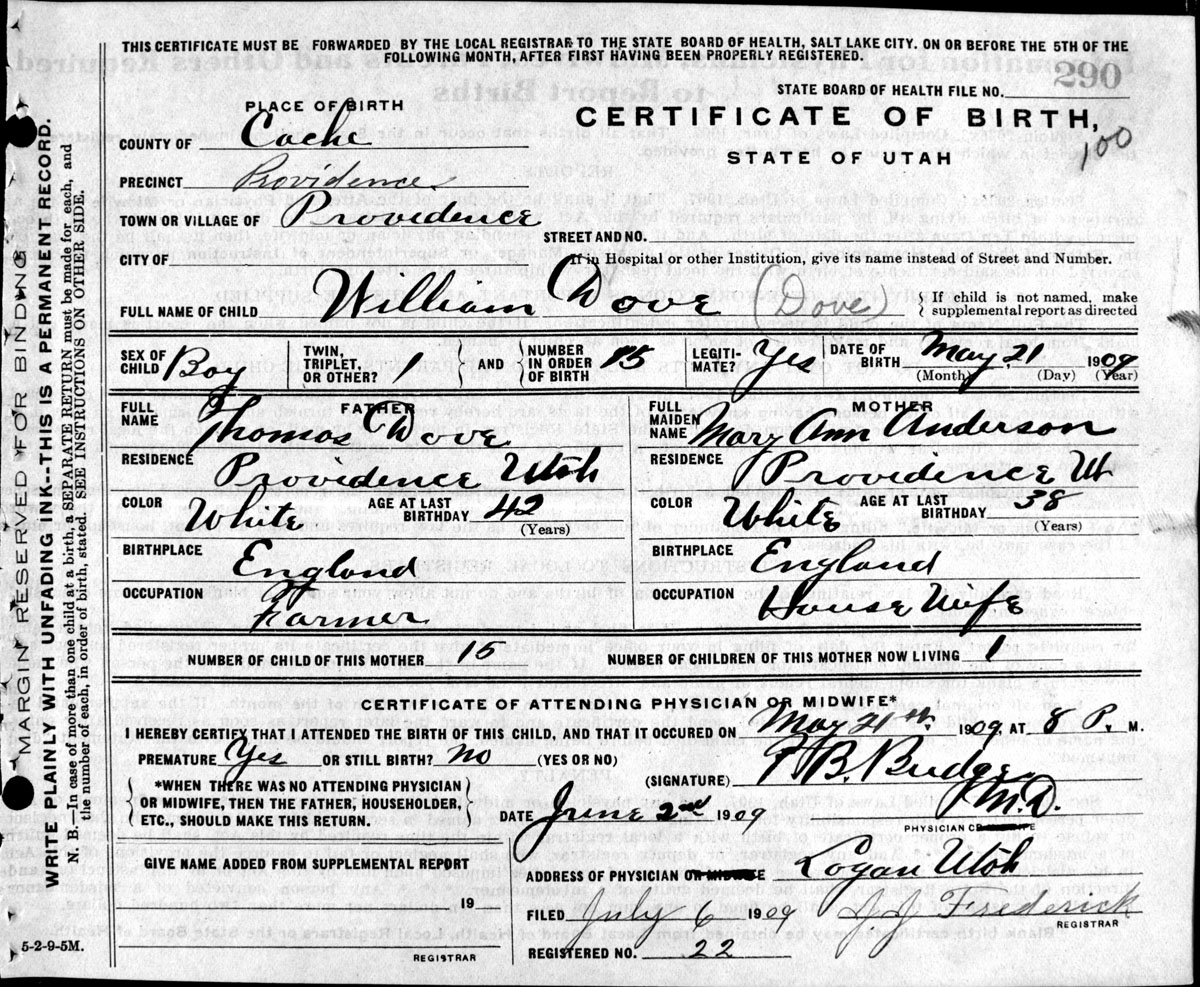 THIS CERTIFICATE MUST BE FORWARDED BY THE LOCAL REGISTRAR TO THE STATE BOARD OF HEALTH, SALT LAKE CITY. ON OR BEFORE THE 5TH OF THE
FOLLOWING MONTH, AFTER FIRST HAVING BEEN PROPERLY REGISTERED.
290
STATE BOARD OF HEALTH FILE NO.
PLACE OF BIRTH
CERTIFICATE OF BIRTH,
100
STATE OF UTAH
COUNTY OF Cache
PRECINCT Providence
TOWN OR VILLAGE OF Providence
STREET AND NO.
CITY OF
If in Hospital or other Institution, give its name instead of Street and Number.
FULL NAME OF CHILD William Dove (Dove) { If child is not named, make
supplemental report as directed
SEX OF CHILD Boy
TWIN, TRIPLET, OR OTHER? 1 } AND { NUMBER IN ORDER OF BIRTH 15
LEGITI-MATE? Yes
DATE OF BIRTH May 21 1909
(Month) (Day) (Year)
FATHER
FULL NAME Thomas Dove
RESIDENCE Providence Utah
COLOR White AGE AT LAST BIRTHDAY 42
(Years)
BIRTHPLACE England
OCCUPATION Farmer
MOTHER
FULL MAIDEN NAME Mary Ann Anderson
RESIDENCE Providence Ut
COLOR White AGE AT LAST BIRTHDAY 38
(Years)
BIRTHPLACE England
OCCUPATION House Wife
NUMBER OF CHILD OF THIS MOTHER 15 NUMBER OF CHILDREN OF THIS MOTHER NOW LIVING 1
CERTIFICATE OF ATTENDING PHYSICIAN OR MIDWIFE*
I HEREBY CERTIFY THAT I ATTENDED THE BIRTH OF THIS CHILD, AND THAT IT OCCURED ON May 21th 1909, AT 8 P. M.
PREMATURE Yes OR STILL BIRTH? No (YES OR NO)
(SIGNATURE) B. Budge M.D.
*WHEN THERE WAS NO ATTENDING PHYSICIAN
OR MIDWIFE, THEN THE FATHER, HOUSEHOLDER,
ETC., SHOULD MAKE THIS RETURN.
DATE June 2nd 1909
PHYSICIAN OR MIDWIFE
GIVE NAME ADDED FROM SUPPLEMENTAL REPORT
19
REGISTRAR
ADDRESS OF PHYSICIAN OR MIDWIFE Logan Utah
FILED July 6 1909 J J Frederick
REGISTRAR
REGISTERED NO. 22
5-2-9-5M.
MARGIN RESERVED FOR BINDING
WRITE PLAINLY WITH UNFADING INK--THIS IS A PERMANENT RECORD.
N. B.—In case of more than one child at a birth, SEPARATE RETURN must be made for each, and
the number of each, in order of birth, stated. SEE INSTRUCTIONS ON OTHER SIDE.